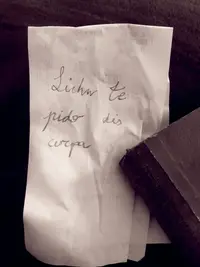 Lichu te
pido dis
culpa